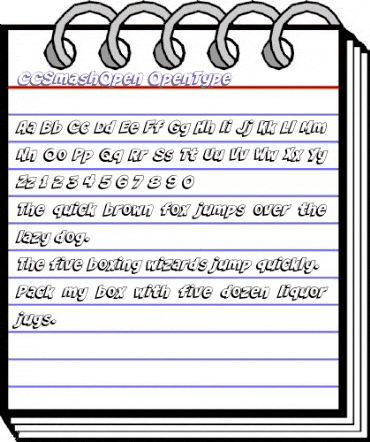 CCSmashOpen OpenType
Aa Bb Cc Dd Ee Ff Gg Hh Ii Jj Kk Ll Mm
Nn Oo Pp Qq Rr Ss Tt Uu Vv Ww Xx Yy
Zz 1 2 3 4 5 6 7 8 9 0
The quick brown fox jumps over the
lazy dog.
The five boxing wizards jump quickly.
Pack my box with five dozen liquor
jugs.